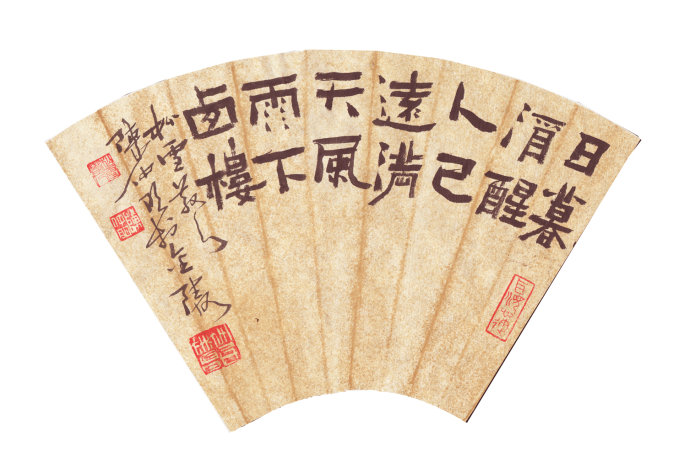 日暮
酒醒
人已
遠滿
天風
雨下
西樓
於金陵